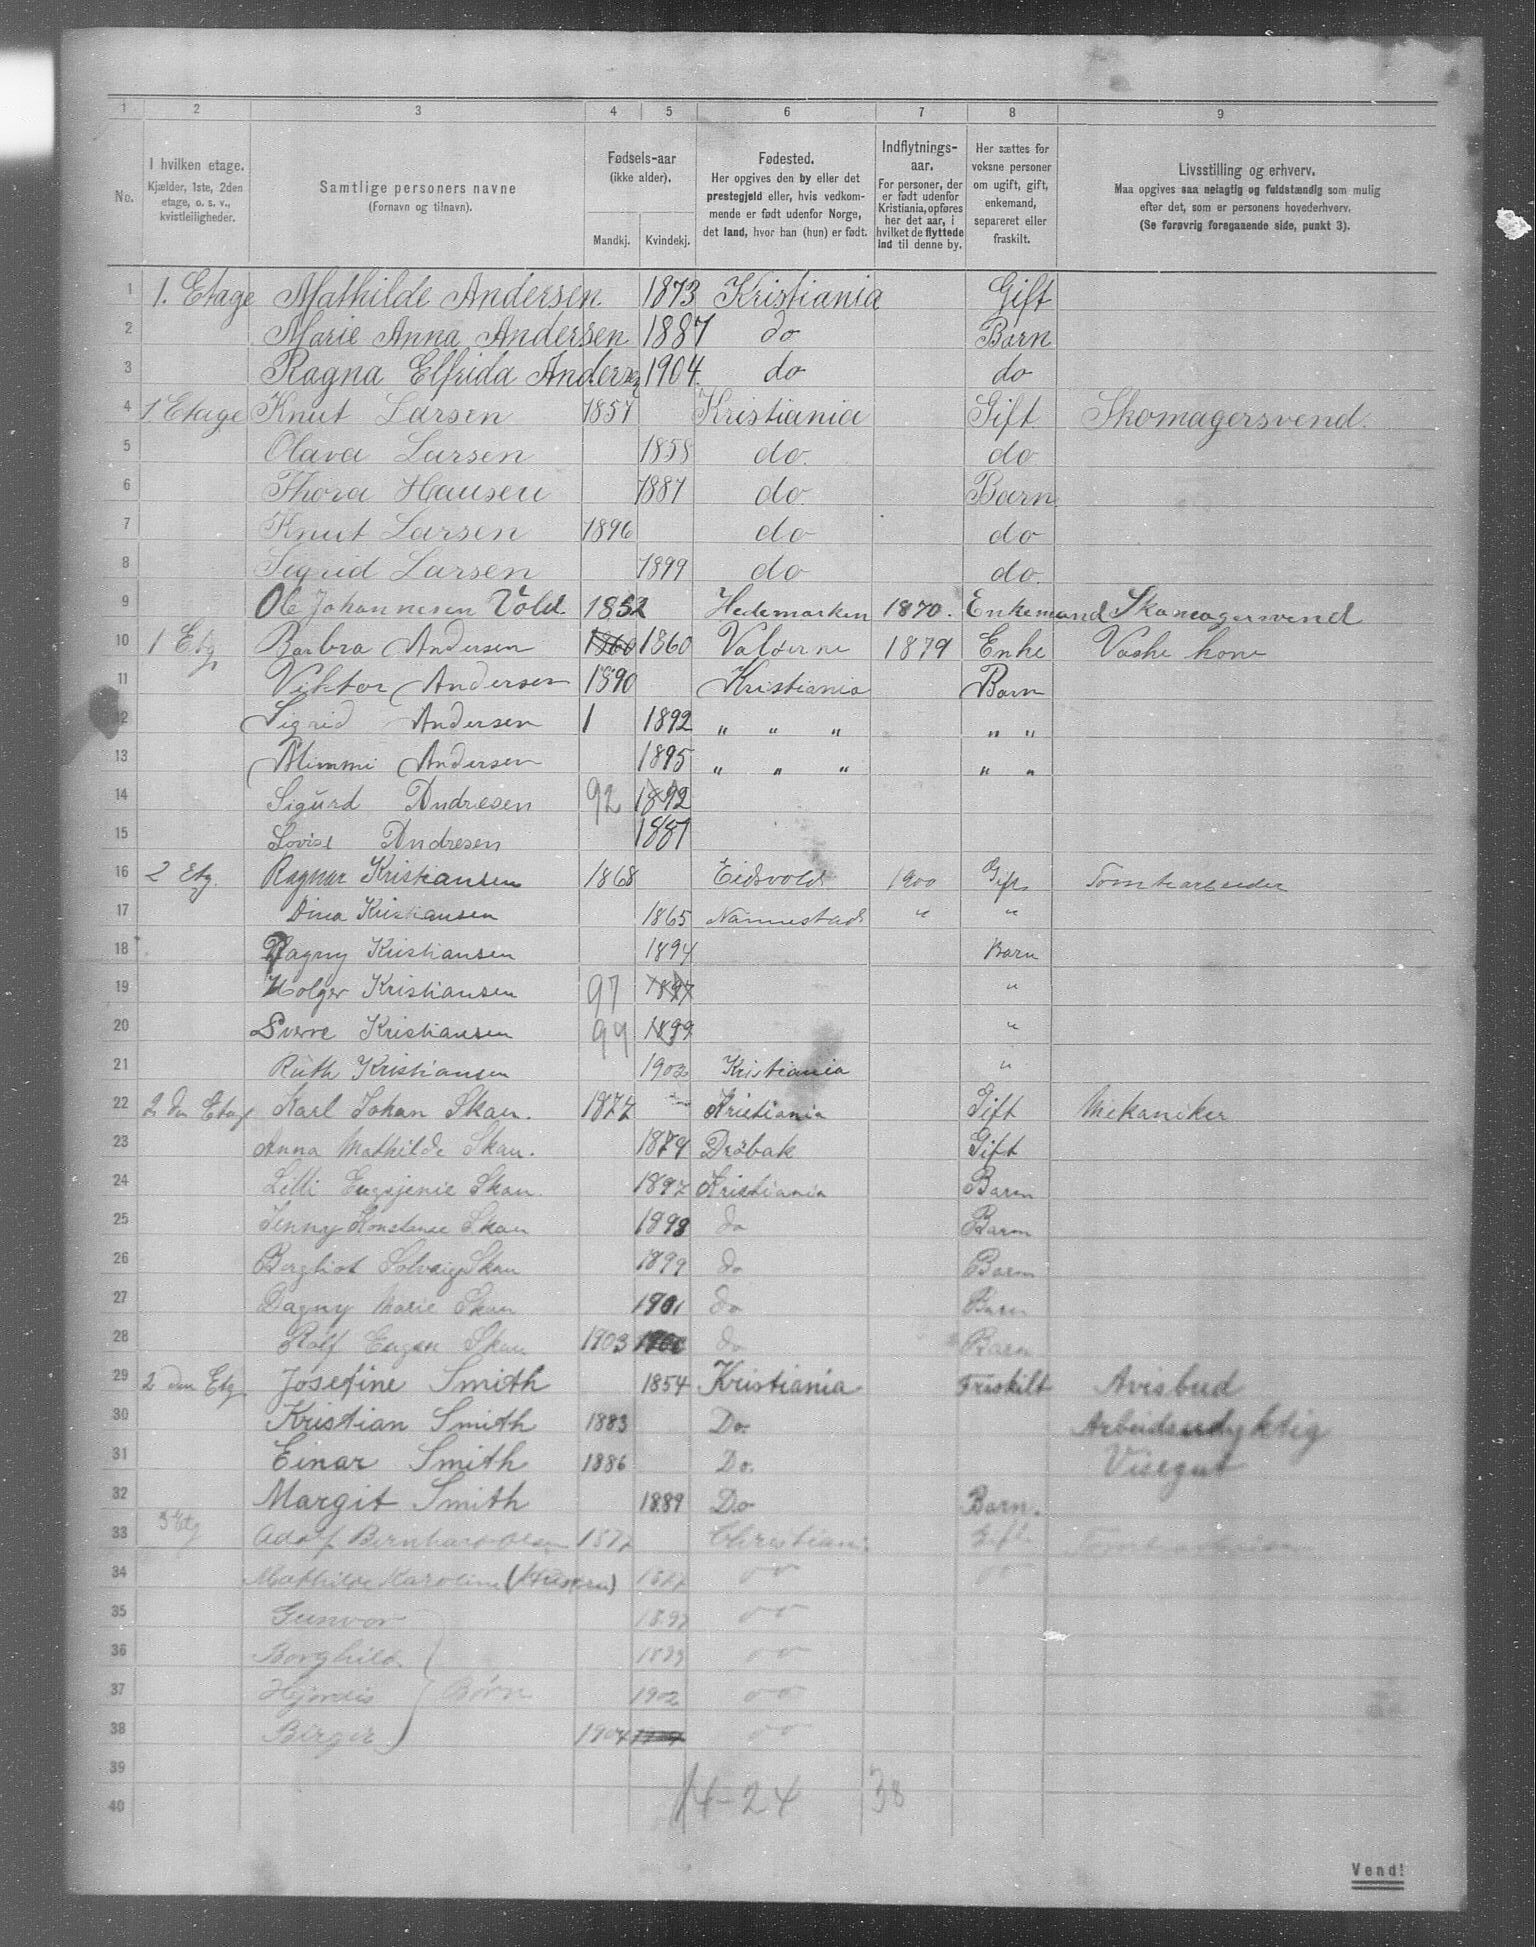 1 2 3 4 5 6 7 8 9
No.
I hvilken etage.
Kjælder, 1ste, 2den
etage, o. s. v.,
kvistleiligheder.
Samtlige personers navne
(Fornavn og tilnavn).
Fødsels-aar
(ikke alder).
Mandkj. Kvindekj.
Fødested.
Her opgives den by eller det
prestegjeld eller, hvis vedkom-
mende er født udenfor Norge,
det land, hvor han (hun) er født.
Indflytnings-
aar.
For personer, der
er født udenfor
Kristiania, opføres
her det aar, i
hvilket de flyttede
ind til denne by.
Her sættes for
voksne personer
om ugift, gift,
enkemand,
separeret eller
fraskilt.
Livsstilling og erhverv.
Maa opgives saa nøiagtig og fuldstændig som mulig
efter det, som er personens hovederhverv.
(Se forøvrig foregaaende side, punkt 3).
1 1. Etage Mathilde Andersen 1873 Kristiania Gift
2 Marie Anna Andersen 1887 do Barn
3 Ragna Elfrida Andersen 1904 do do
4 1 Etage Knut Larsen 1857 Kristiania Gift Skomagersvend.
5 Olava Larsen 1858 do. do
6 Thora Hansen 1887 do. Barn
7 Knut Larsen 1896 do do
8 Sigrid Larsen 1899 do do.
9 Ole Johannesen Vold 1852 Hedemarken 1870. Enkemand Skomagersvend
10 1 Etg Barbra Andersen 1860 1860 Valderne 1879 Enke Vaske kone
11 Viktor Andersen 1890 Kristiania Barn
12 Sigrid Andersen 1 1892 " " " " "
13 Mimmi Andersen 1895 " " " " "
14 Sigurd Andresen 92 1892
15 Lovise Andresen 1881
16 2 Etg. Ragnar Kristiansen 1868 Eidsvold 1900 Gift Tomtearbeider
17 Dina Kristiansen 1865 Nannestad " "
18 Dagny Kristiansen 1894 Barn
19 Holger Kristiansen 97 1897 "
20 Sverre Kristiansen 99 1899 "
21 Ruth Kristiansen 1902 Kristiania "
22 2 den Etag Karl Johan Skau. 1877 Kristiania Gift Mekaniker
23 Anna Mathilde Skau. 1879 Drøbak Gift
24 Lilli Eugenie Skau. 1897 Kristiania Barn
25 Jenny Konstanse Skau 1898 do Barn
26 Bergliot Solveig Skau 1899 do Barn
27 Dagny Marie Skau 1901 do Barn
28 Rolf Eugen Skau 1903 do Barn
29 2 den Etg. Josefine Smith 1854 Kristiania Friskilt Avisbud
30 Kristian Smith 1883 Do. Arbeidsudyktig
31 Einar Smith 1886 Do. Visegut
32 Margit Smith 1889 Do Barn.
33 3 Etg Adolf Bernhard Olsen 1872 Christiania Gift Tomtearbeider
34 Mathilde Karoline 1877 do do
35 Gunvor 1897 do
36 Borghild 1899 do
37 Hjørdis Børn 1902 do
38 Birger 1904 do
39
40 14-24 38
Vend!